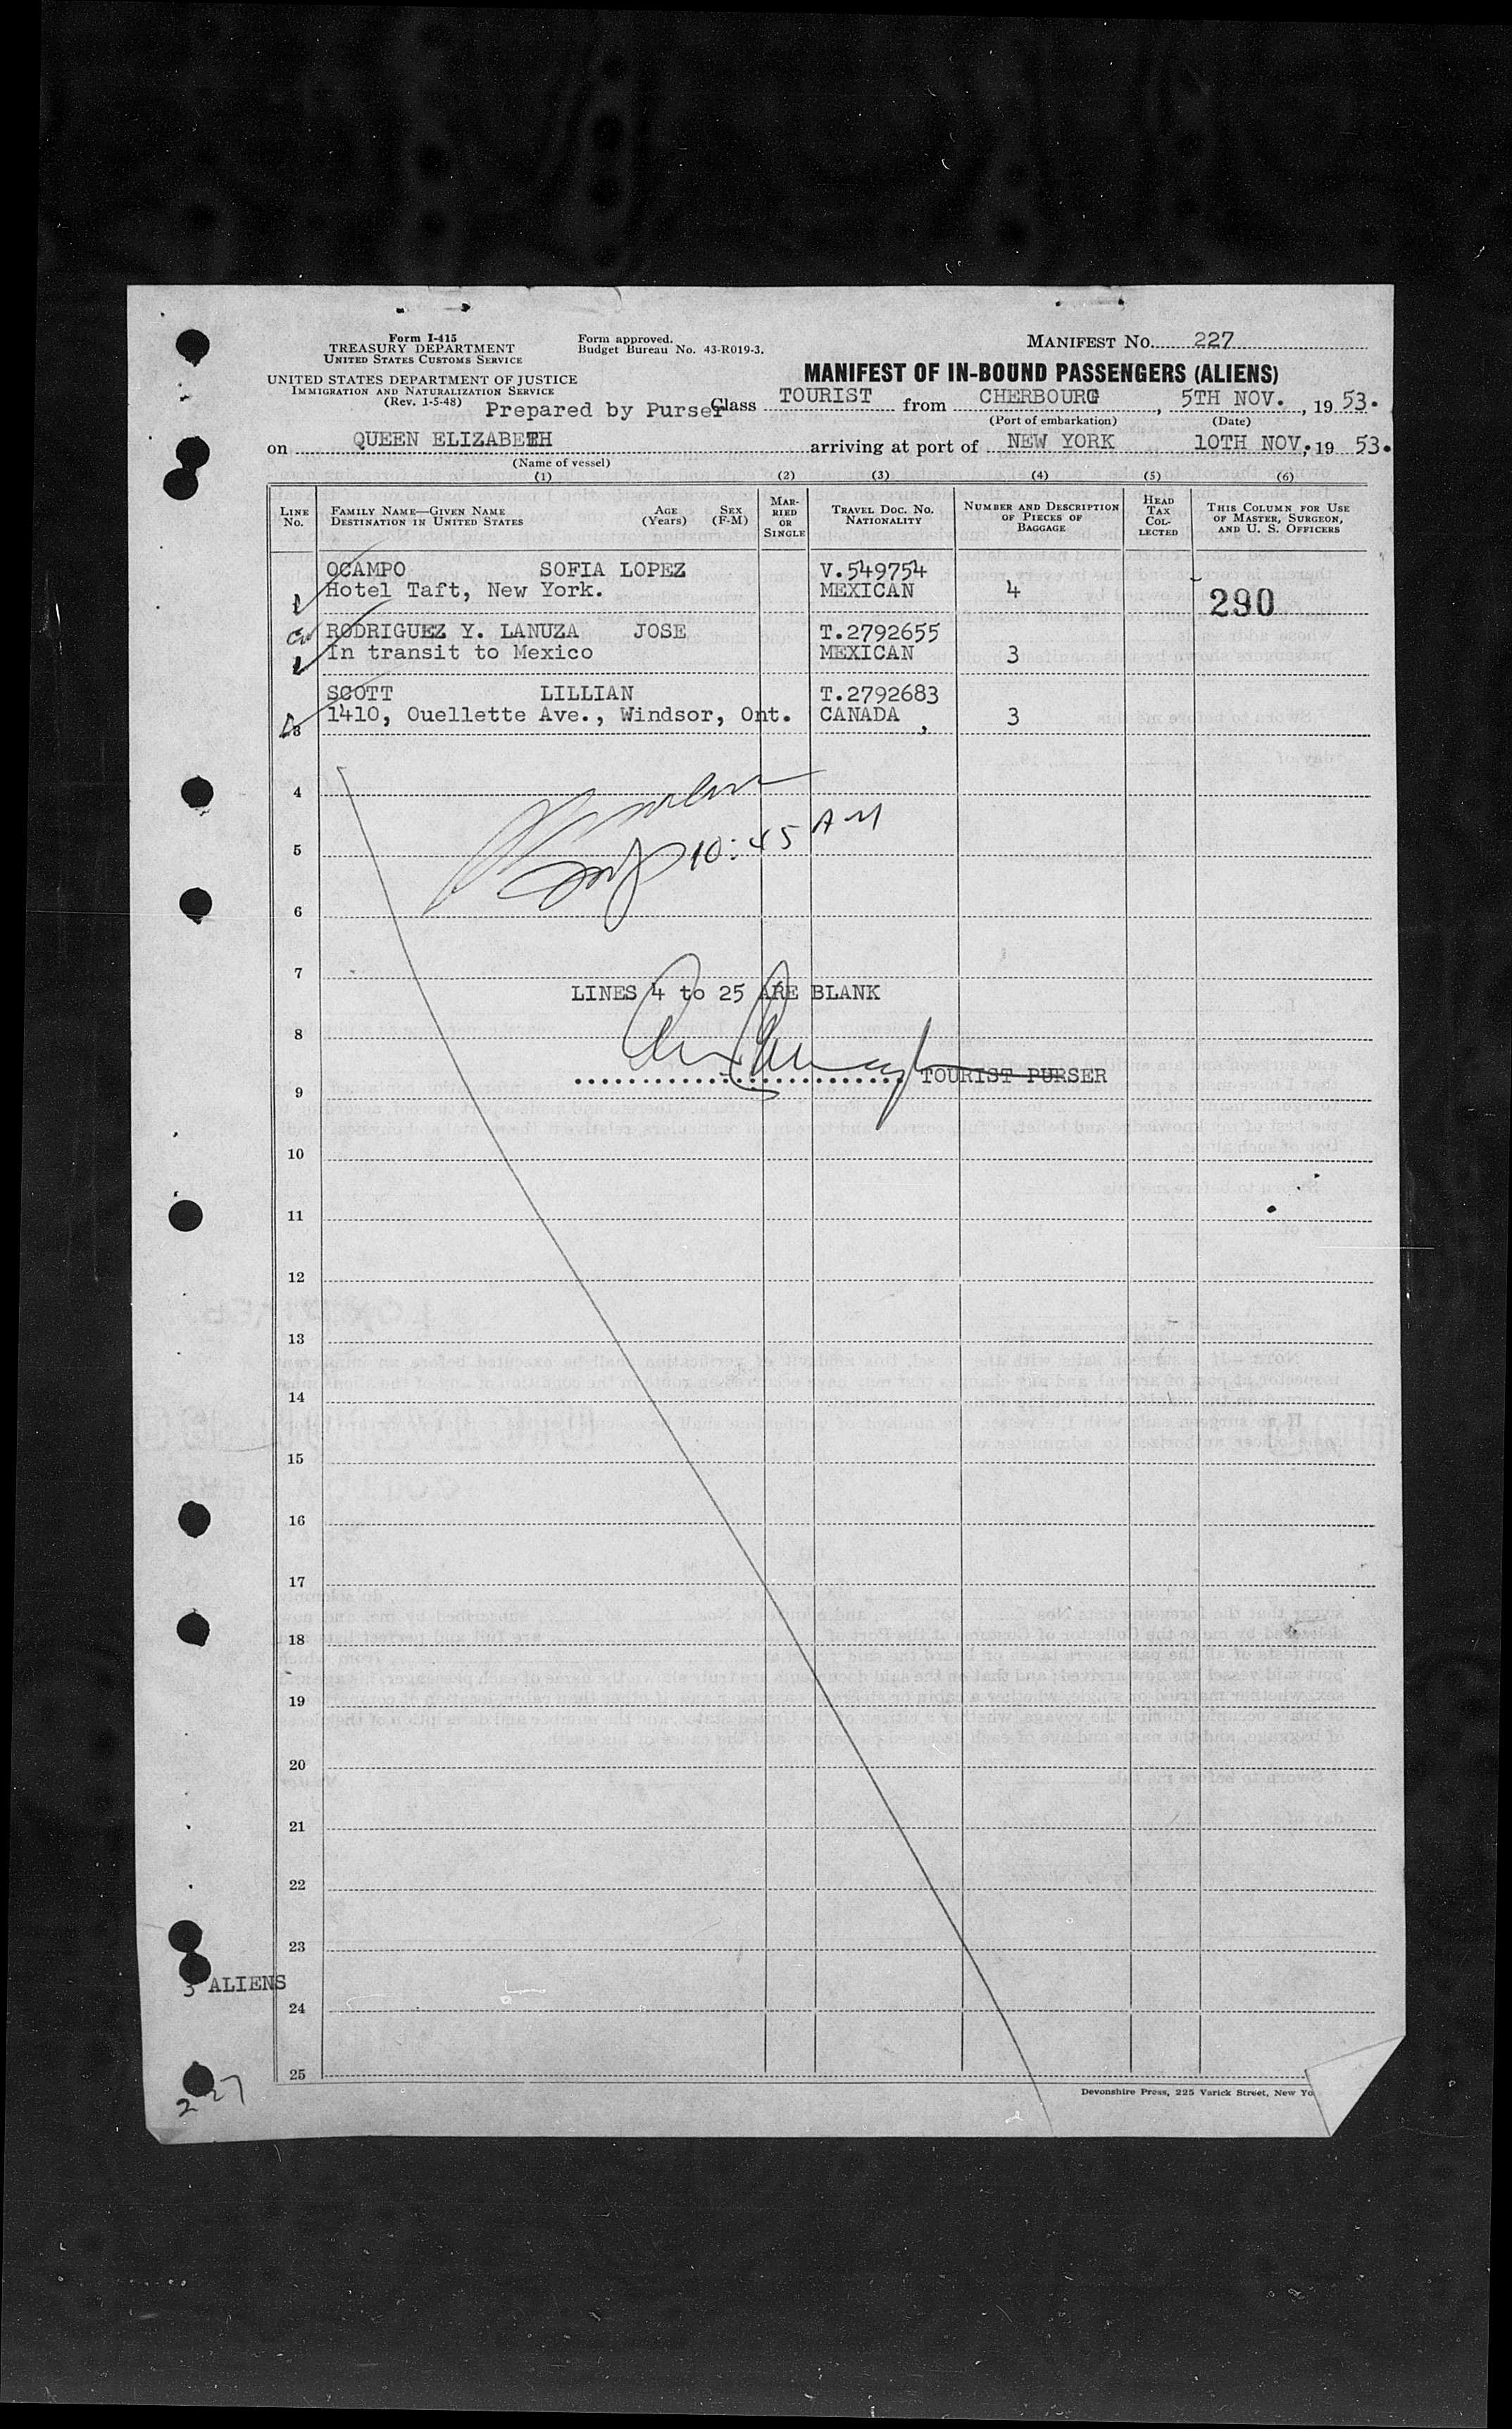 Form I-415
TREASURY DEPARTMENT
UNITED STATES CUSTOMS SERVICE
Form approved.
Budget Bureau No. 43-R019-3.
MANIFEST No. 227
UNITED STATES DEPARTMENT OF JUSTICE
IMMIGRATION AND NATURALIZATION SERVICE
(Rev. 1-5-48)
MANIFEST OF IN-BOUND PASSENGERS (ALIENS)
Prepared by Purser Class TOURIST from CHERBOURG, 5TH NOV., 19 53.
(Port of embarkation) (Date)
on QUEEN ELIZABETH arriving at port of NEW YORK 10TH NOV. 19 53.
(Name of vessel)
(1) (2) (3) (4) (5) (6)
LINE No. FAMILY NAME—GIVEN NAME DESTINATION IN UNITED STATES AGE (Years) SEX (F-M) MARRIED OR SINGLE TRAVEL DOC. No. NATIONALITY NUMBER AND DESCRIPTION OF PIECES OF BAGGAGE HEAD TAX COLLECTED THIS COLUMN FOR USE OF MASTER, SURGEON, AND U. S. OFFICERS
OCAMPO SOFIA LOPEZ V.549754
Hotel Taft, New York. MEXICAN 4 290
RODRIGUEZ Y. LANUZA JOSE T.2792655
In transit to Mexico MEXICAN 3
SCOTT LILLIAN T.2792683
3 1410, Ouellette Ave., Windsor, Ont. CANADA , 3
4
10:45 AM
5
6
7
LINES 4 to 25 ARE BLANK
8
TOURIST PURSER
9
10
11
12
13
14
15
16
17
18
19
20
21
22
23
3 ALIENS
24
25
Devonshire Press, 225 Varick Street, New Yo
227